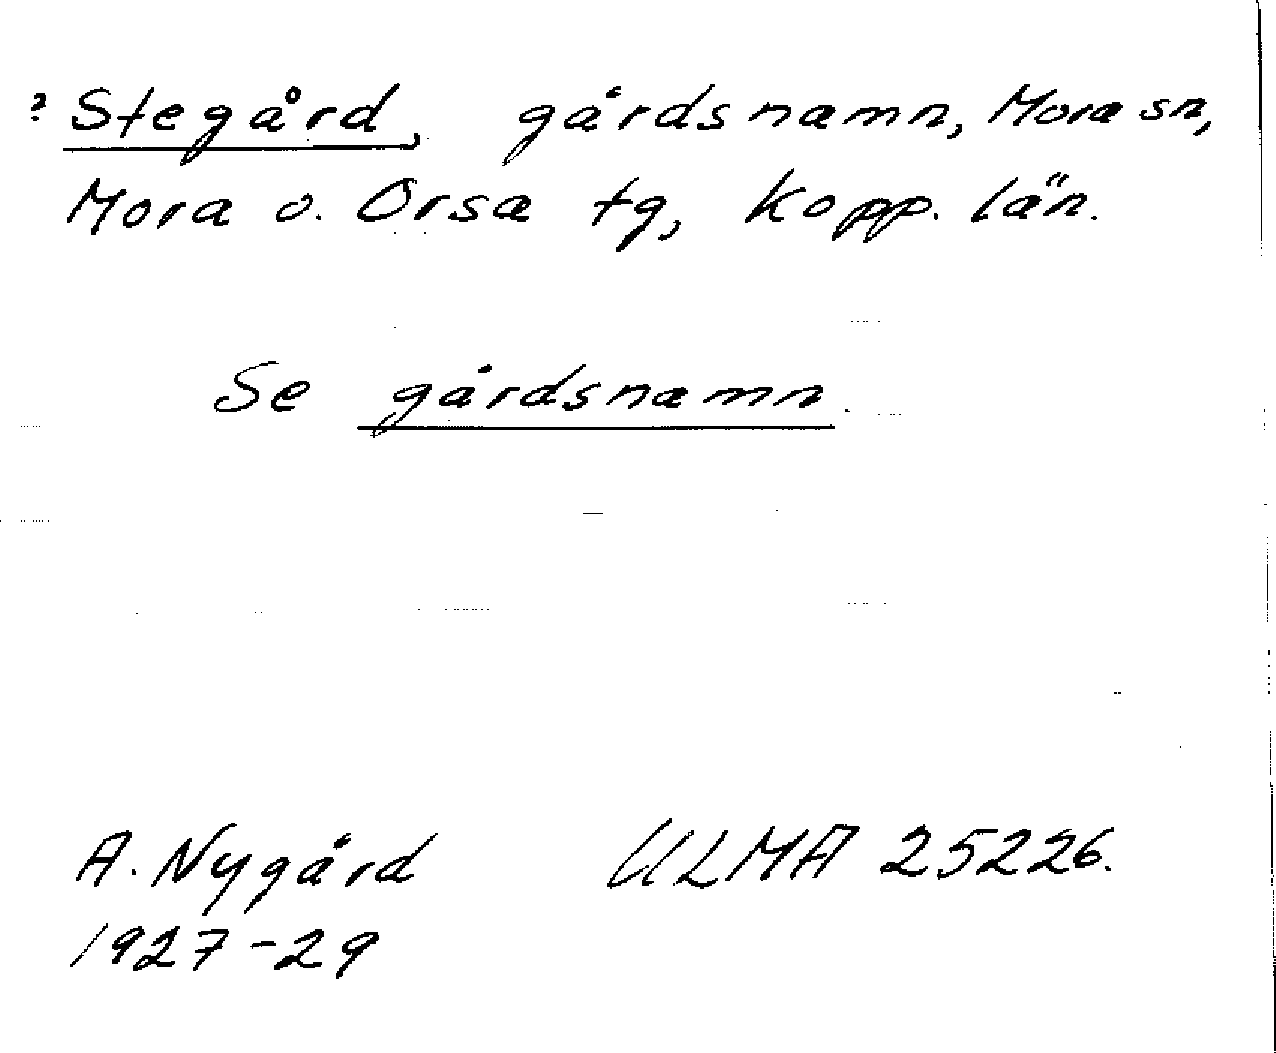 ? Stegård, gårdsnamn, Mora sn,
Mora o. Orsa tg, Kopp. län.
Se gårdsnamn.
A. Nygård ULMA 25226.
1927-29